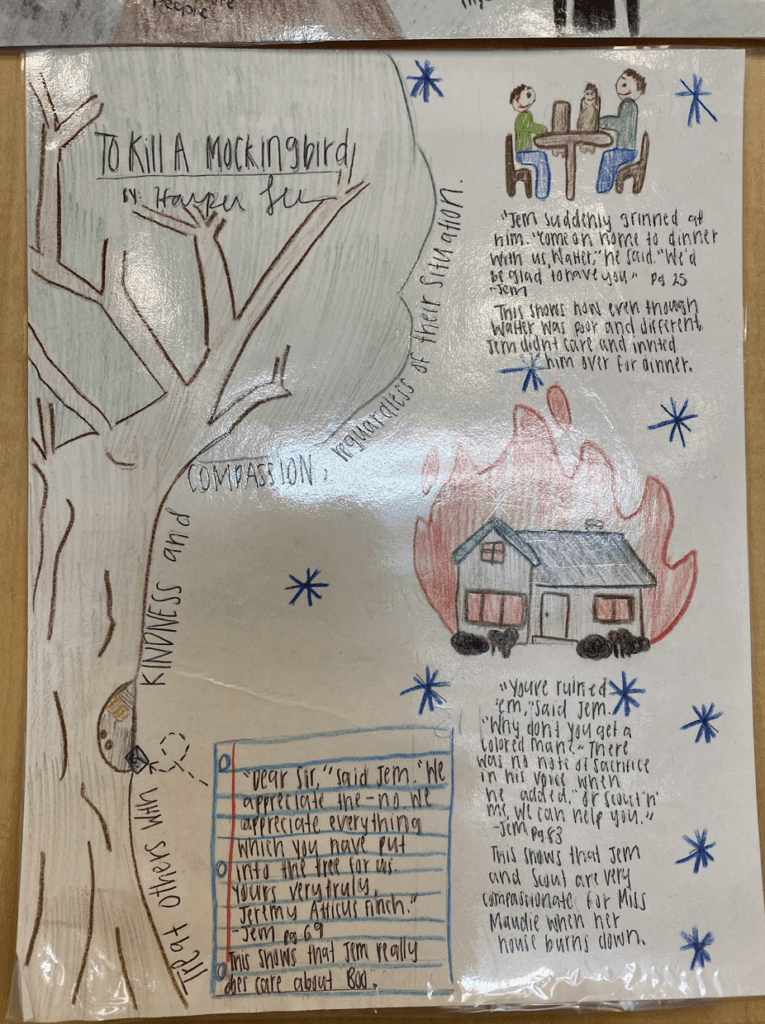 People
To Kill A Mockingbird
BY: Harper Lee
Treat others with KINDNESS and COMPASSION, reguardless of their situation.
"Jem suddenly grinned at
him. "Come on home to dinner
with us, Walter," he said. "We'd
be glad to have you." pg 25
-Jem
This shows how even though
Walter was poor and different,
Jem didnt care and invited
him over for dinner.
"Youre ruined
'em," said Jem.
"Why dont you get a
colored man?" There
was no note of sacrifice
in his voice when
he added, "or Scout'n'
me, we can help you."
-Jem pg 83
This shows that Jem
and Scout are very
compassionate for Miss
Maudie when her
house burns down.
"Dear Sir," said Jem. "We
appreciate the-no we
appreciate everything
which you have put
into the tree for us.
Yours very truly,
Jeremy Atticus Finch."
-Jem pg 69
This shows that Jem really
does care about Boo.